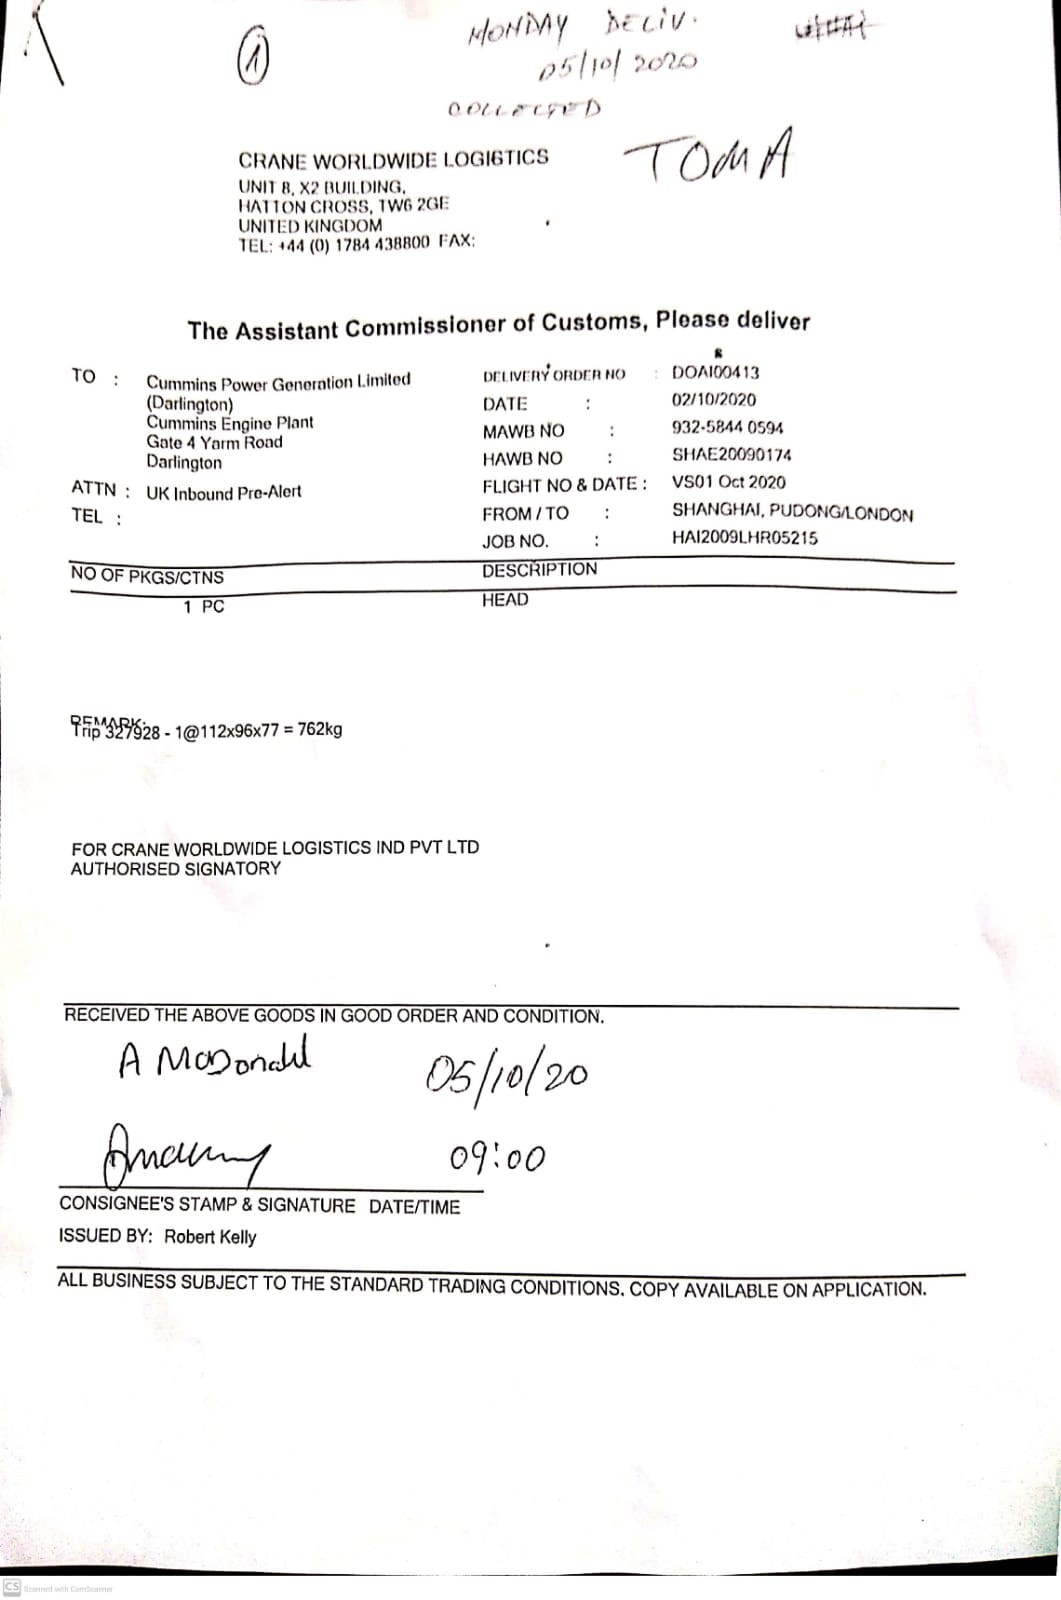 1
MONDAY DELIV.
05/10/2020
COLLECTED
TOMA
CRANE WORLDWIDE LOGISTICS
UNIT 8, X2 BUILDING,
HATTON CROSS, TW6 2GE
UNITED KINGDOM
TEL: +44 (0) 1784 438800 FAX:
The Assistant Commissioner of Customs, Please deliver
TO : Cummins Power Generation Limited
(Darlington)
Cummins Engine Plant
Gate 4 Yarm Road
Darlington
ATTN : UK Inbound Pre-Alert
TEL :
DELIVERY ORDER NO : DOAI00413
DATE : 02/10/2020
MAWB NO : 932-5844 0594
HAWB NO : SHAE20090174
FLIGHT NO & DATE : VS01 Oct 2020
FROM / TO : SHANGHAI, PUDONG/LONDON
JOB NO. : HAI2009LHR05215
NO OF PKGS/CTNS DESCRIPTION
1 PC HEAD
REMARK:
Trip 327928 - 1@112x96x77 = 762kg
FOR CRANE WORLDWIDE LOGISTICS IND PVT LTD
AUTHORISED SIGNATORY
RECEIVED THE ABOVE GOODS IN GOOD ORDER AND CONDITION.
A McDonald 05/10/20
09:00
CONSIGNEE'S STAMP & SIGNATURE DATE/TIME
ISSUED BY: Robert Kelly
ALL BUSINESS SUBJECT TO THE STANDARD TRADING CONDITIONS. COPY AVAILABLE ON APPLICATION.
CS Scanned with CamScanner